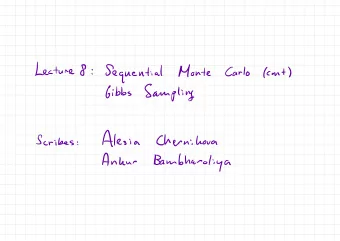 Lecture 8: Sequential Monte Carlo (cont)
Gibbs Sampling
Scribes: Alesia Chernihova
Ankur Bambharoliya